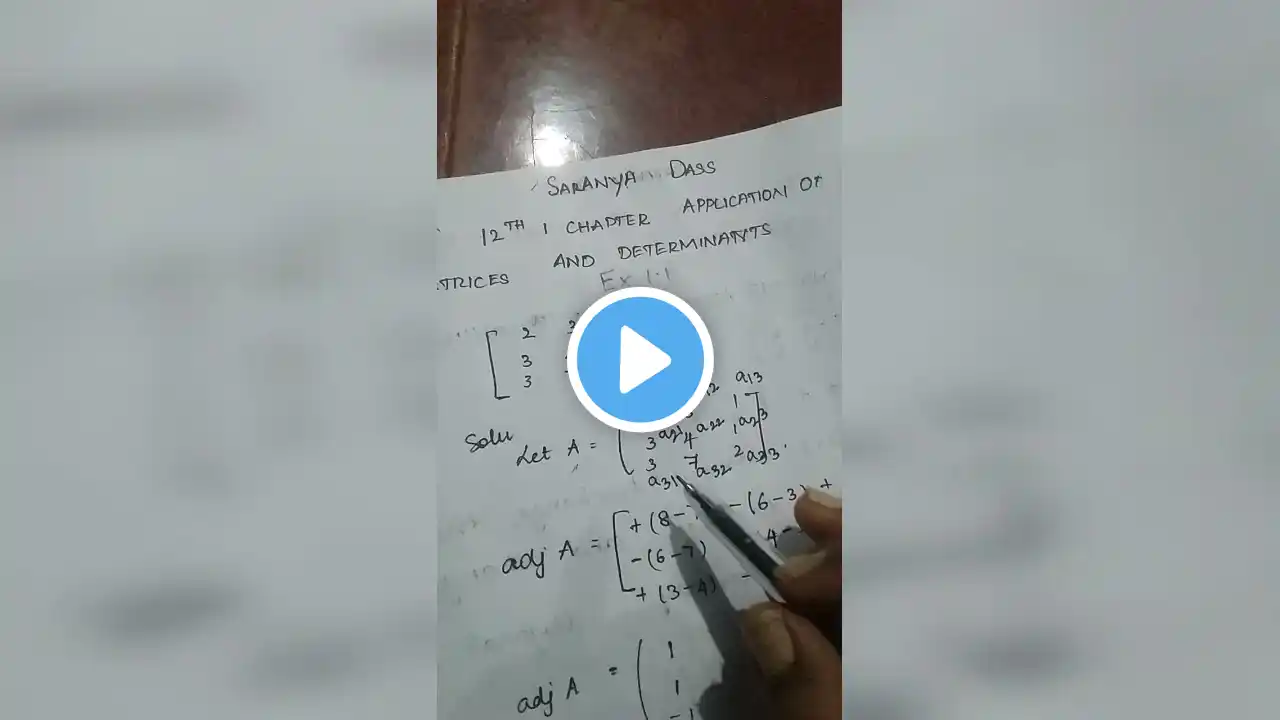 SARANYA DASS
12TH 1 CHAPTER APPLICATION OF
TRICES AND DETERMINANTS
Ex 1.1
2 3
3
3
Solu
Let A =
a13
1
3 a21 4 a22 1 a23
3 7 2 a33
a31 a32
adj A = + (8- -(6-3) +
-(6-7) 4-
+ (3-4) -
adj A = 1
1
-1